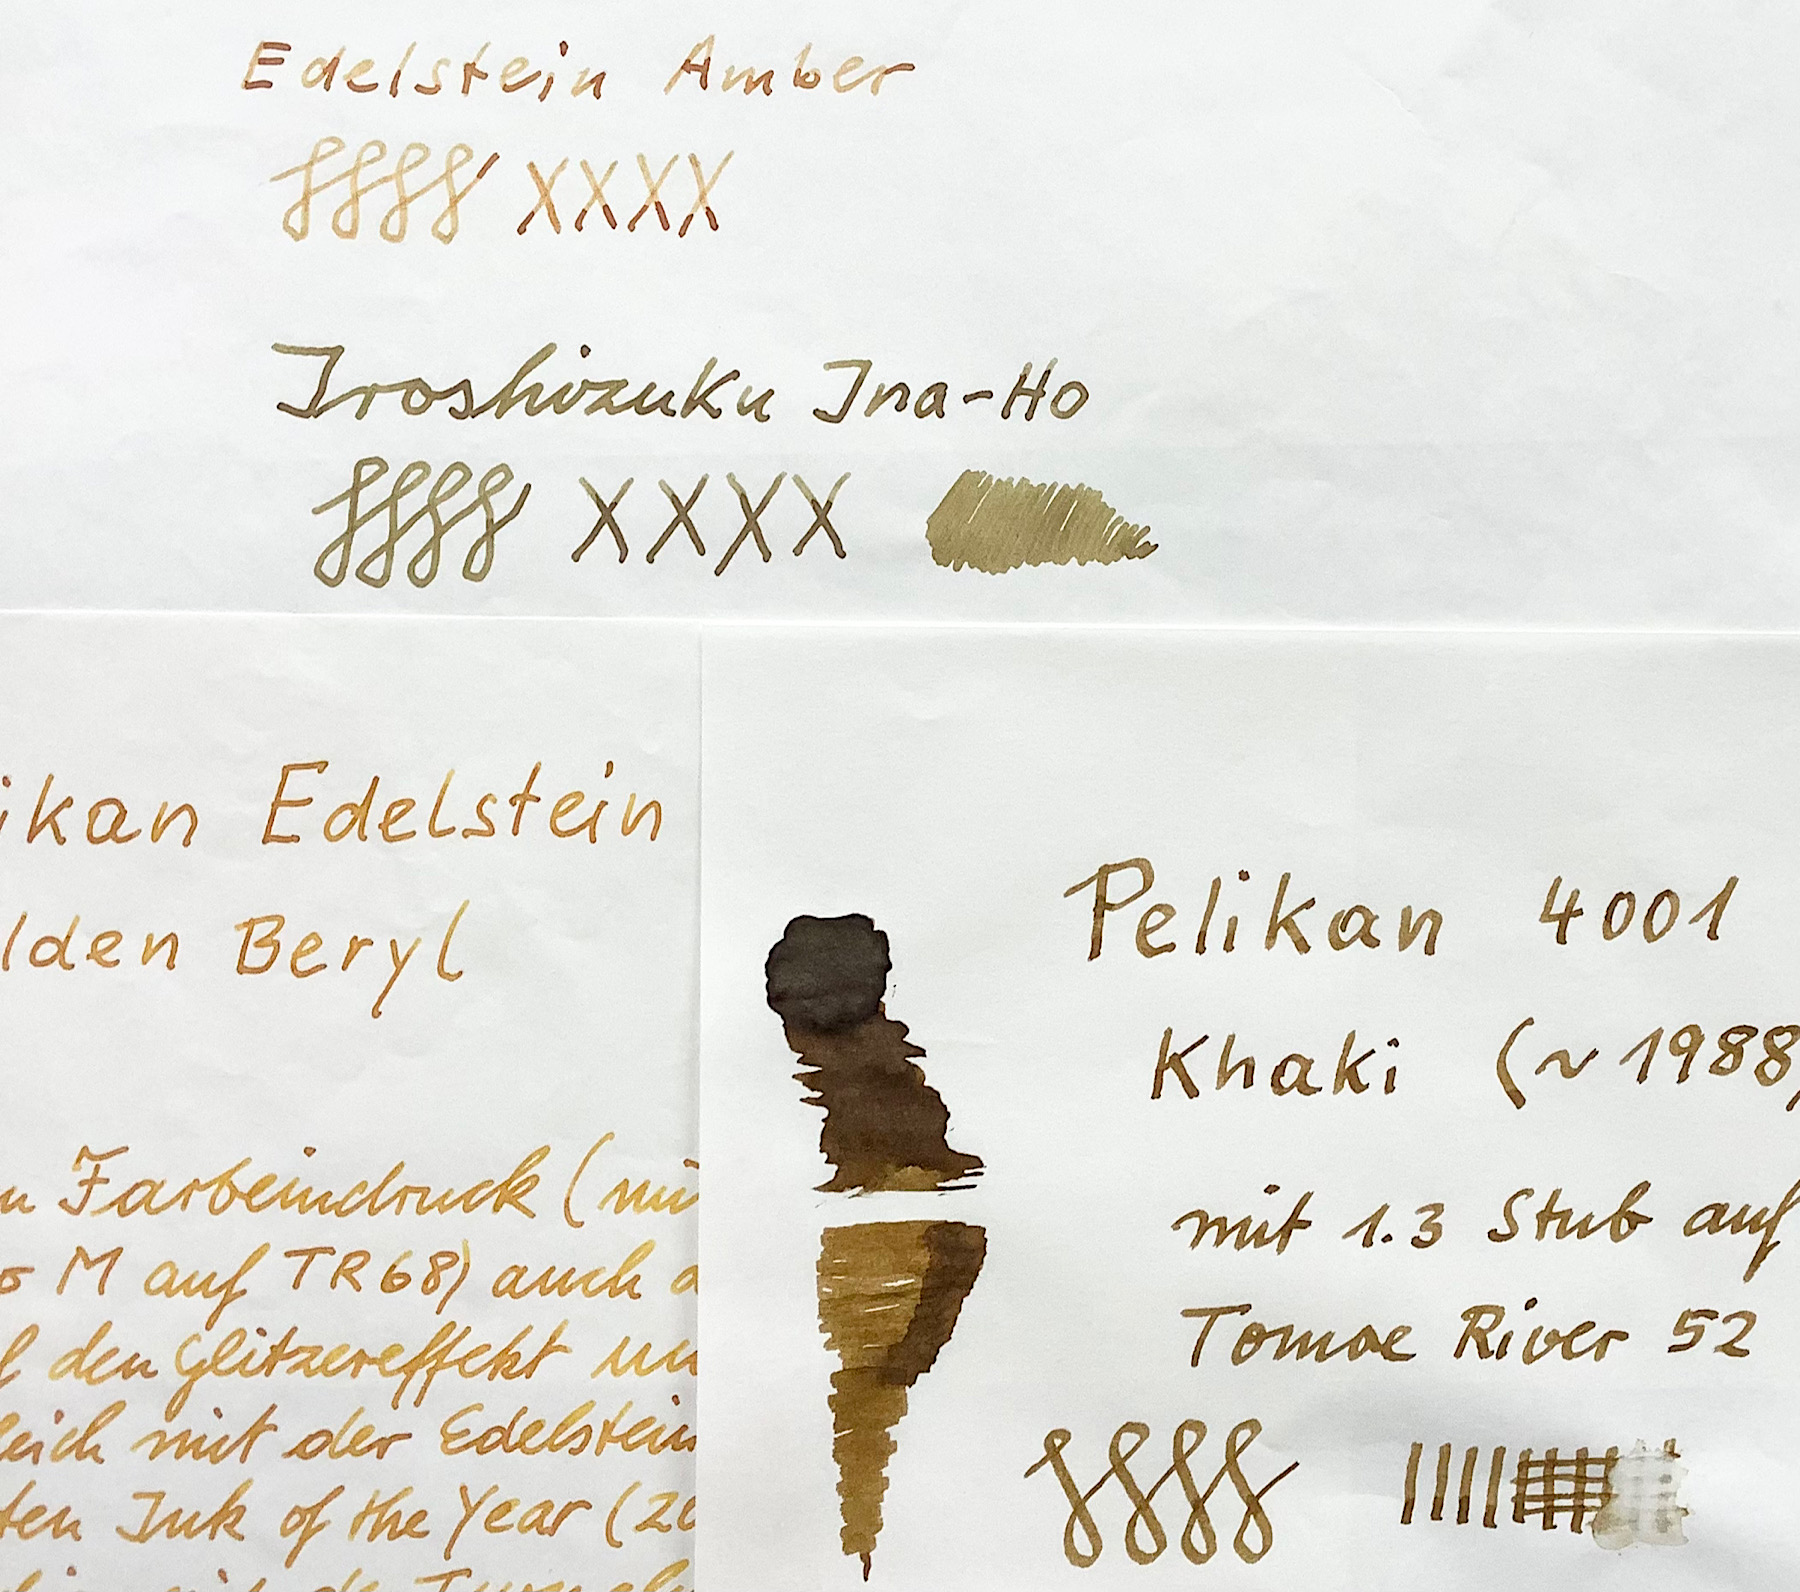 Edelstein Amber
XXXX
Iroshizuku Ina-Ho
XXXX
ikan Edelstein
lden Beryl
n Farbeindruck (mi
o M auf TR68) auch a
f den Glitzereffekt un
leich mit der Edelstein
ten Ink of the Year (20
Pelikan 4001
Khaki (~1988)
mit 1.3 Stub auf
Tomoe River 52